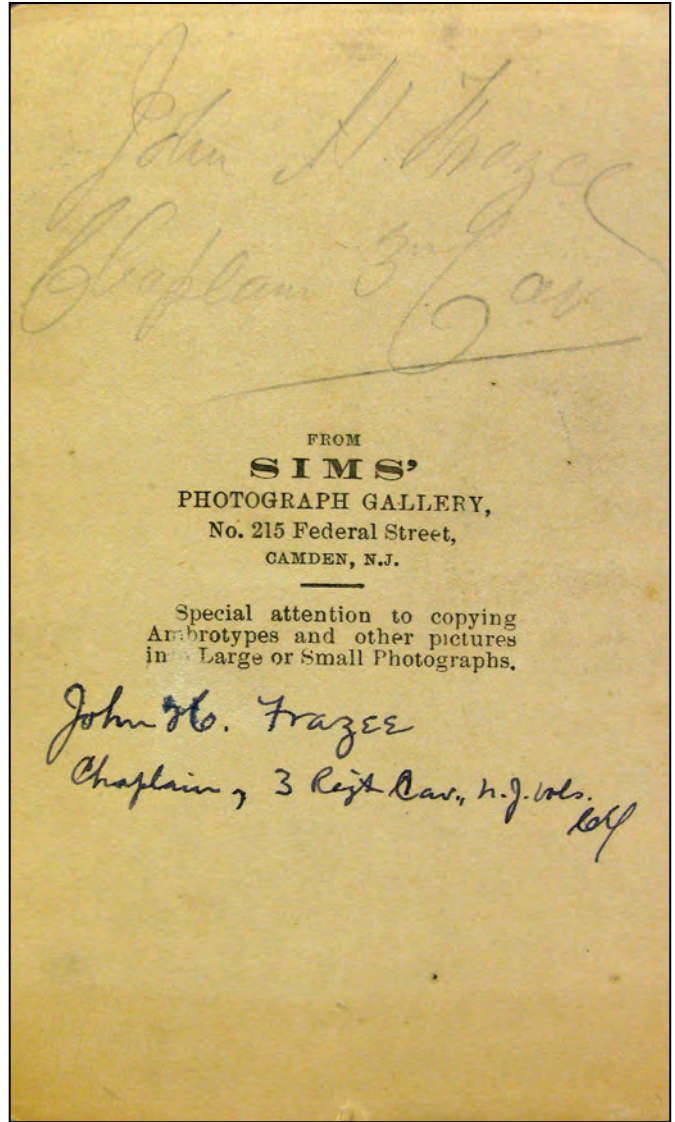 John H. Frazee
Chaplain 3rd Cav
FROM
SIMS'
PHOTOGRAPH GALLERY,
No. 215 Federal Street,
CAMDEN, N.J.
Special attention to copying
Ambrotypes and other pictures
in Large or Small Photographs.
John H. Frazee
Chaplain, 3 Regt Cav., N.J. Vols.